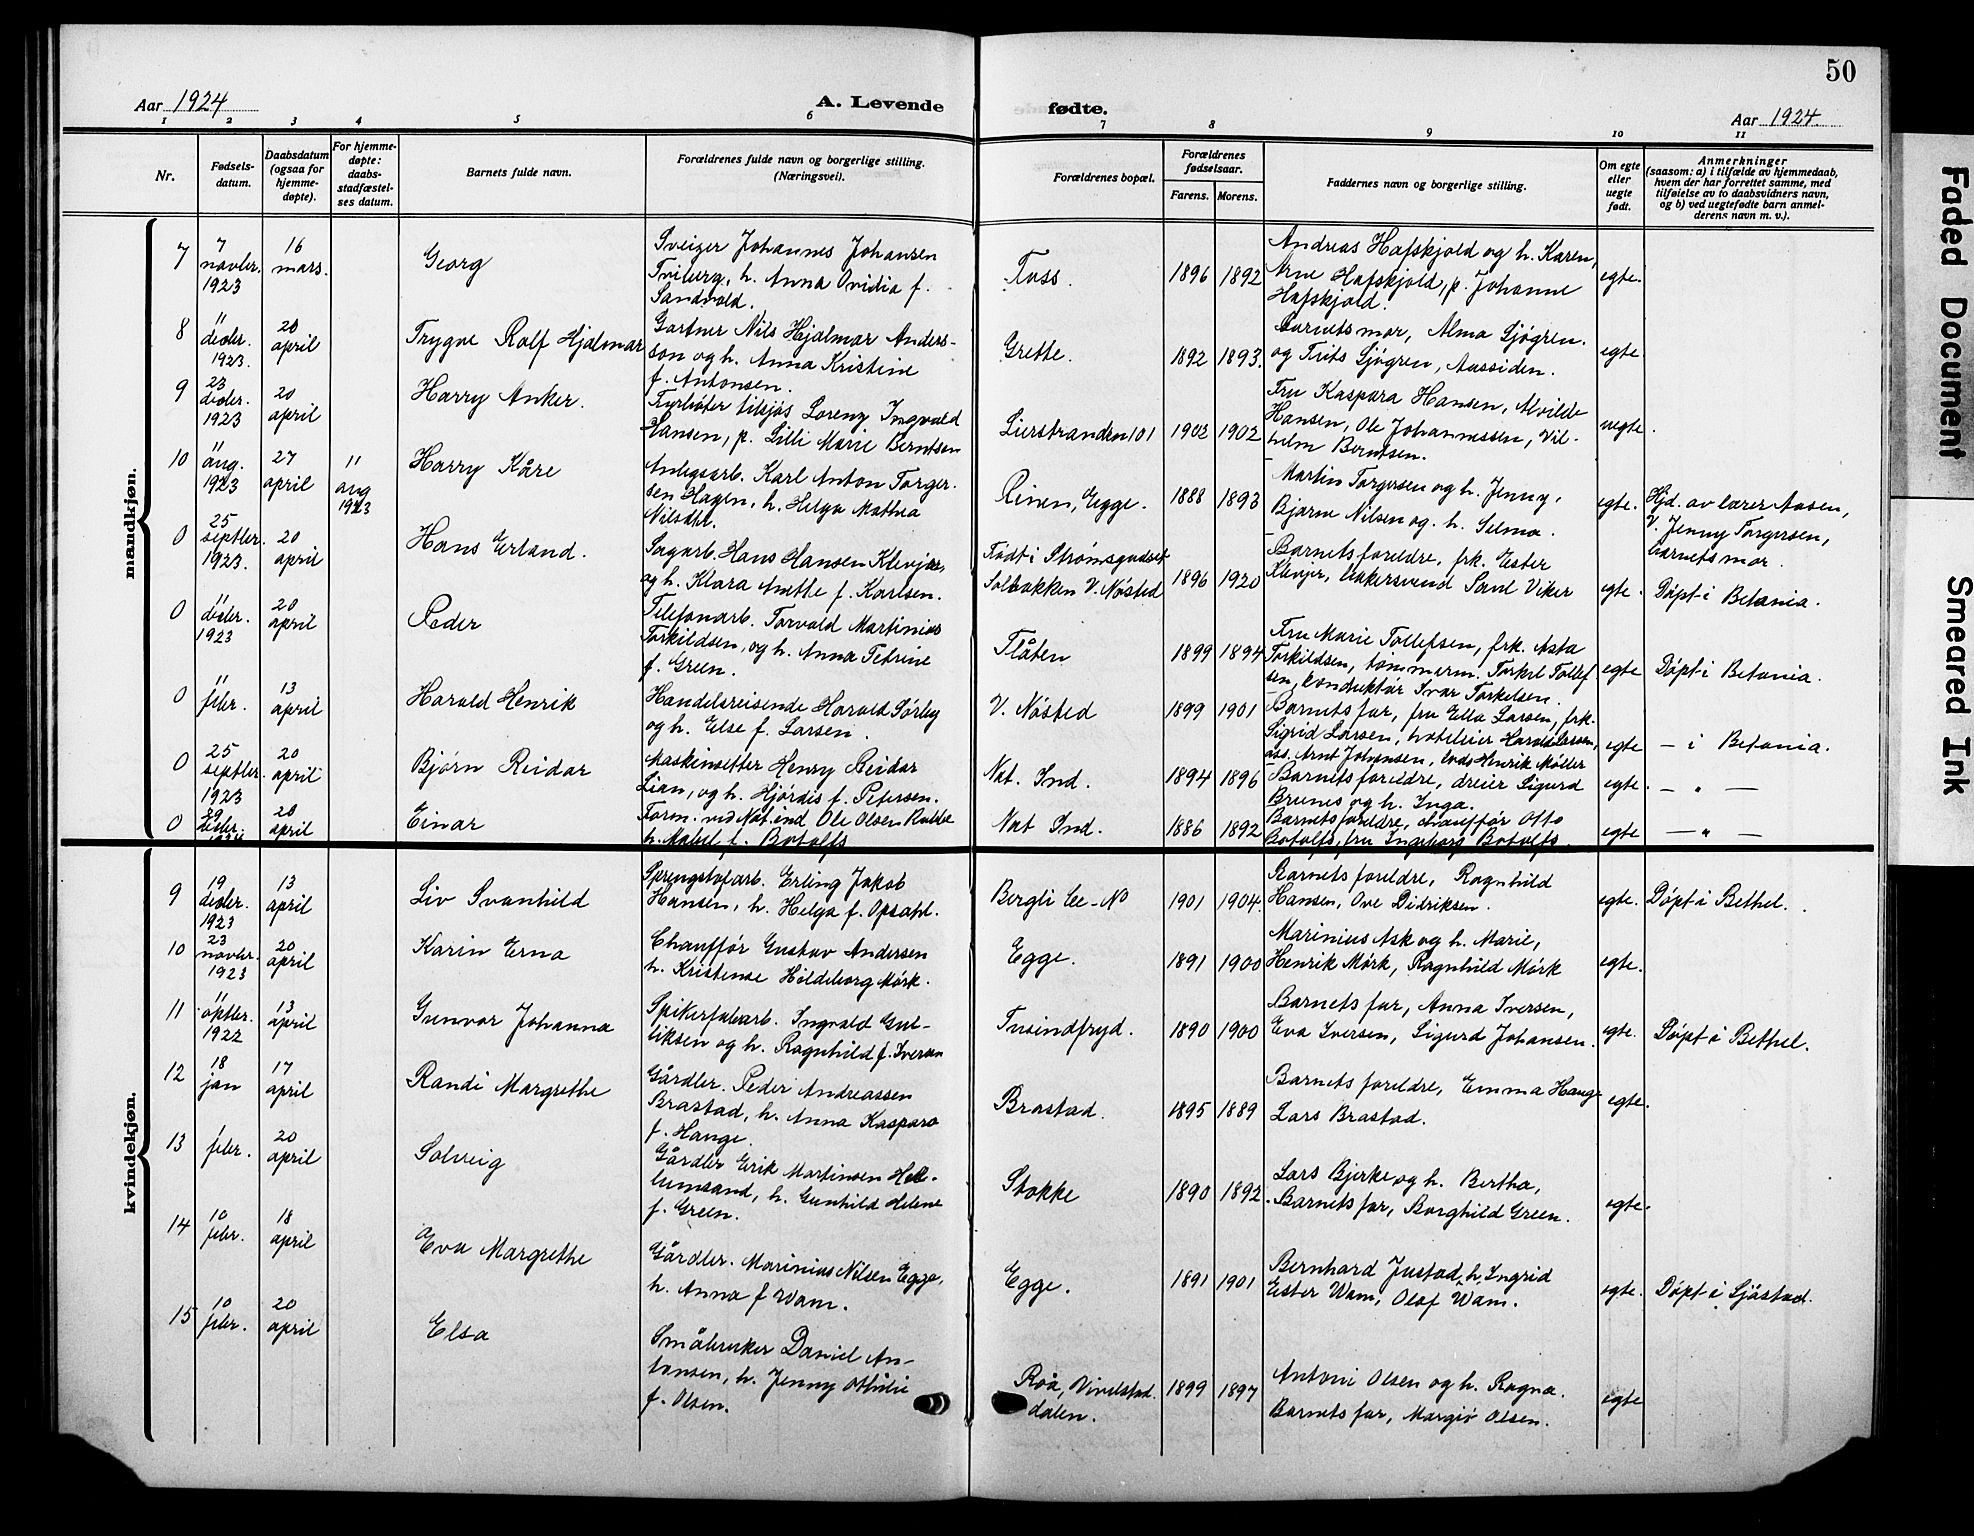 50
Aar 1924
A. Levende
fødte.
Aar 1924.
1 2 3 4 5 6 7 8 9 10 11
Nr.
Fødsels-
datum.
Daabsdatum
(ogsaa for
hjemme-
døpte).
For hjemme-
døpte:
daabs-
stadfæstel-
ses datum.
Barnets fulde navn.
Forældrenes fulde navn og borgerlige stilling.
(Næringsvei).
Forældrenes bopæl.
Forældrenes
fødselsaar.
Farens. Morens.
Faddernes navn og borgerlige stilling.
Om egte
eller
uegte
født.
Anmerkninger
(saasom: a) i tilfælde av hjemmedaab,
hvem der har forrettet samme, med
tilføielse av to daabsvidners navn,
og b) ved uegtefødte barn anmel-
derens navn m. v.).
mandkjøn.
7
7
novbr.
1923
16
mars.
Georg
Sveizer Johannes Johansen
Tviberg, h. Anna Ovidia f.
Sandvold.
Foss.
1896 1892
Andreas Hafskjold og h. Karen,
Arne Hafskjold, p. Johanne
Hafskjold.
egte.
8
11
decbr.
1923.
20
april
Trygve Rolf Hjalmar
Gartner Nils Hjalmar Anders-
son og h. Anna Kristine
f. Antonsen.
Grette.
1892 1893.
Barnets mor, Alma Sjøgren.
og Frits Sjøgren, Aassiden.
egte.
9
23
decbr.
1923
20
april
Harry Anker.
Fyrbøter tilsjøs Lorenz Ingvald
Hansen, p. Lilli Marie Berntsen
Lierstranden 101
1902 1902
Fru Kaspara Hansen, Alvilde
Hansen, Ole Johannessen, Vil-
helm Berntsen.
uegte.
10
11
aug.
1923
27
april
11
aug
1923
Harry Kåre
Anlegsarb. Karl Anton Torger-
sen Hagen, h. Helga Mathea
Nilsdtr.
Renen, Egge.
1888 1893
Martin Torgersen og h. Jenny,
Bjarne Nilsen og h. Selma.
egte.
Hjd. av lærer Aasen,
V. Jenny Torgersen,
barnets mor.
0
25
septbr.
1923.
20
april
Hans Erland.
Sagarb. Hans Hansen Klevjer,
og h. Klara Anette f. Karlsen.
Født i Strømsgodset
Solbakken V. Nøsted
1896 1920
Barnets foreldre, frk. Ester
Klevjer, Viker
egte.
Døpt i Betania.
0
11
decbr.
1923
20
april
Peder
Telefonarb. Torvald Martinius
Torkildsen, og h. Anna Petrine
f. Green.
Flåten
1899 1894
Fru Marie Tollefsen, frk. Asta
Torkildsen, tømmerm. Torkel Tollef
sen, konduktør Ivar Torkelsen.
egte
Døpt i Betania.
0
11
febr.
13
april
Harald Henrik
Handelsreisende Harald Sørby
og h. Else f. Larsen.
V. Nøsted
1899 1901
Barnets far, fru Ella Larsen, frk.
Sigrid Larsen, hoteleier Harald Larsen,
ass. Arnt Johansen, Henrik Møller
egte
— i Betania.
0
25
septbr.
1923
20
april
Bjørn Reidar
Maskinsetter Henry Reidar
Lian, og h. Hjördis f. Petersen.
Nat. Ind.
1894 1896
Barnets foreldre, dreier Sigurd
Brunes og h. Inga.
egte.
— " —
0
29
decbr.
20
april
Einar
Form. ved Nat. ind Ole Olsen
h. Mabel f. Botolfs
Nat Ind.
1886 1892
Barnets foreldre, chauffør Otto
Botolfs, fru Ingeborg Botolfs.
egte
— " —
kvindekjøn.
9
19
decbr.
1923
13
april
Liv Svanhild
Sprengstofarb. Erling Jakob
Hansen, h. Helga f. Opsahl.
Bergli
1901 1904.
Barnets foreldre, Ragnhild
Hansen, Ove Didriksen.
egte.
Døpt i Bethel.
10
23
novbr.
1923
20
april
Karin Erna
Chauffør Gustav Andersen
h. Kristense Hildeborg Mørk.
Egge.
1891 1900
Marinius Ask og h. Marie,
Henrik Mørk, Ragnhild Mørk
egte.
11
11
1922
13
april
Gunvor Johanna
Spikerfabarb. Ingvald Gul-
liksen og h. Ragnhild f. Iversen
Tusindfryd.
1890 1900
Barnets far, Anna Iversen,
Eva Iversen, Sigurd Johansen.
egte.
Døpt i Bethel.
12
18
jan
17
april
Randi Margrethe
Gårdbr. Peder Andreassen
Brastad, h. Anna Kaspara
f. Hange.
Brastad.
1895 1889
Barnets foreldre, Emma Hange
Lars Brastad.
egte.
13
1
febr.
20
april
Solveig
Gårdbr Erik Martinsen Hel-
lumsand, h. Gunhild Helene
f. Green.
Stokke
1890 1892
Lars Bjerke og h. Bertha,
Barnets far, Borghild Green.
egte.
14
10
febr.
18
april
Eva Margrethe
Gårdbr. Marinius Nilsen Egge,
h. Anna f Wam.
Egge.
1891 1901
Bernhard Justad, h. Ingrid
Ester Wam, Olaf Wam.
egte.
Døpt i Sjåstad.
15
10
febr.
20
april
Elsa
Småbruker Daniel An-
tonsen, h. Jenny Othilie
f. Olsen.
Røa,
dalen.
1899 1897
Antoni Olsen og h. Ragna.
Barnets far, Margit Olsen.
egte
Faded Document
Smeared Ink